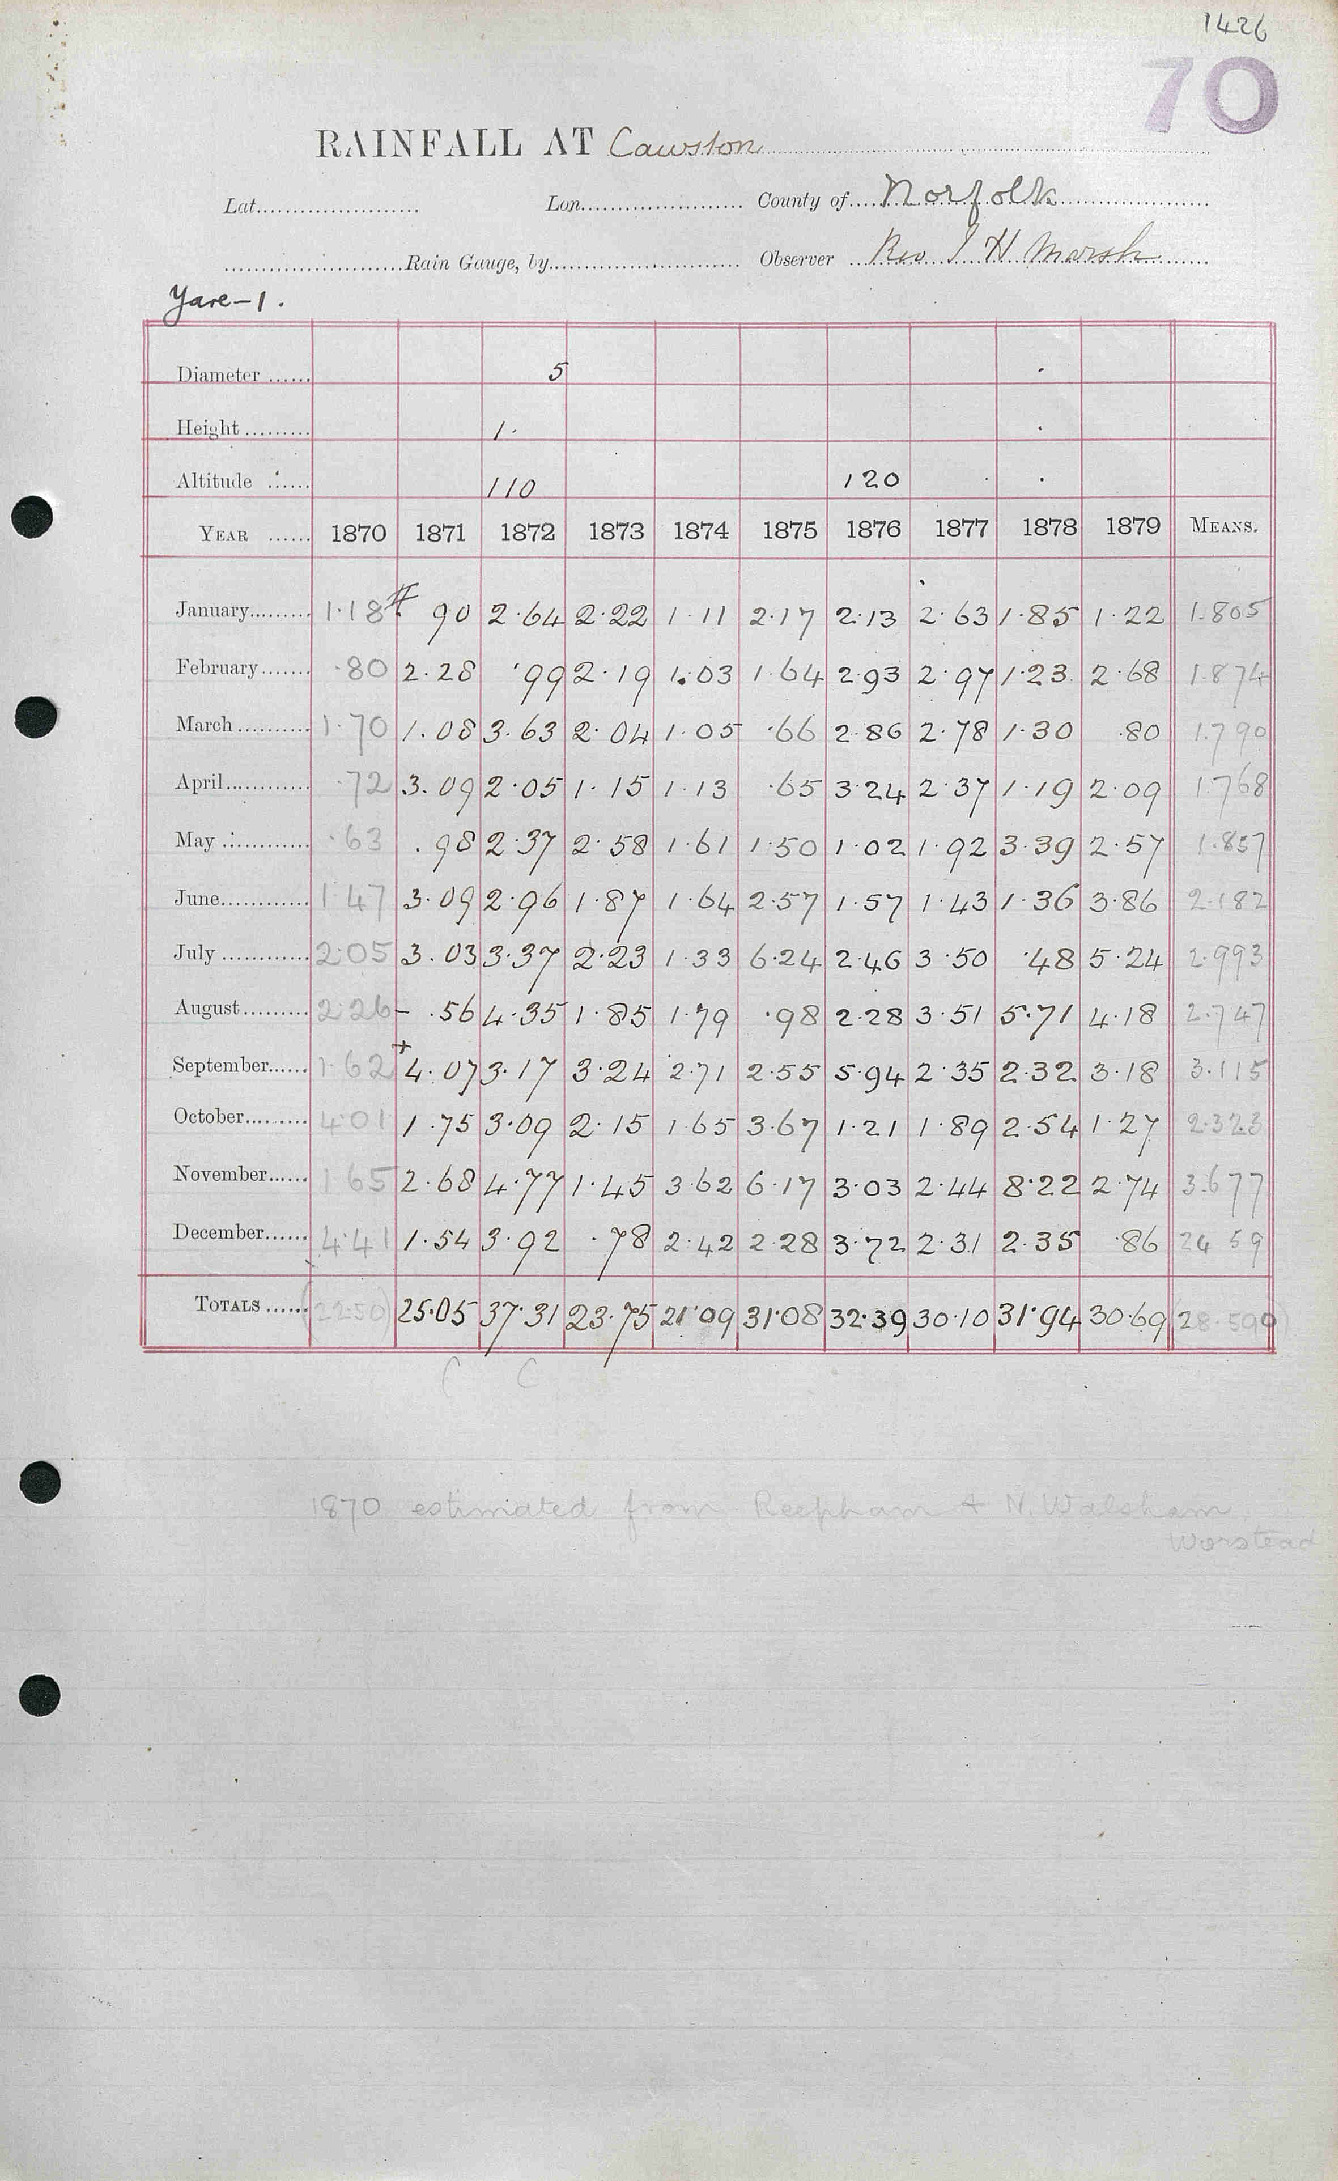 1426
70
RAINFALL AT Cawston
Lat. Lon. County of Norfolk
Rain Gauge, by Observer Rev J H Marsh
Yare-1.
Diameter 5
Height 1.
Altitude 110 120
YEAR 1870 1871 1872 1873 1874 1875 1876 1877 1878 1879 MEANS.
January 1.18 .90 2.64 2.22 1.11 2.17 2.13 2.63 1.85 1.22 1.805
February .80 2.28 .99 2.19 1.03 1.64 2.93 2.97 1.23 2.68 1.874
March 1.70 1.08 3.63 2.04 1.05 .66 2.86 2.78 1.30 .80 1.790
April .72 3.09 2.05 1.15 1.13 .65 3.24 2.37 1.19 2.09 1.768
May .63 .98 2.37 2.58 1.61 1.50 1.02 1.92 3.39 2.57 1.857
June 1.47 3.09 2.96 1.87 1.64 2.57 1.57 1.43 1.36 3.86 2.182
July 2.05 3.03 3.37 2.23 1.33 6.24 2.46 3.50 .48 5.24 2.993
August 2.26 - .56 4.35 1.85 1.79 .98 2.28 3.51 5.71 4.18 2.747
September 1.62 + 4.07 3.17 3.24 2.71 2.55 5.94 2.35 2.32 3.18 3.115
October 4.01 1.75 3.09 2.15 1.65 3.67 1.21 1.89 2.54 1.27 2.323
November 1.65 2.68 4.77 1.45 3.62 6.17 3.03 2.44 8.22 2.74 3.677
December 4.41 1.54 3.92 .78 2.42 2.28 3.72 2.31 2.35 .86 2459
TOTALS (22.50) 25.05 37.31 23.75 21.09 31.08 32.39 30.10 31.94 30.69 (28.590)
C C
1870 estimated from Reepham & N. Walsham
Worstead